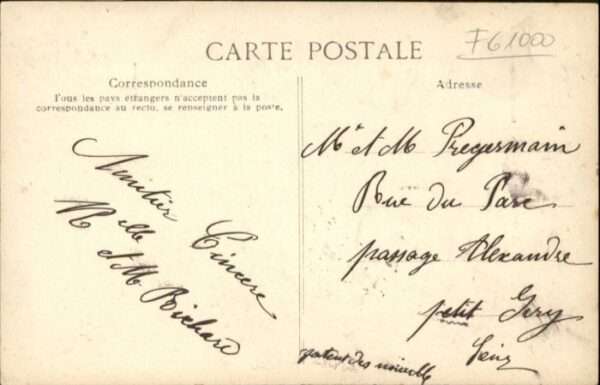 F61000
CARTE POSTALE
Correspondance
Tous les pays étrangers n'acceptent pas la
correspondance au recto, se renseigner à la poste.
Adresse
Amitiér Cincere
Melle
et M Richard
Mr et M Pregermain
Rue du Parc
passage Alexandre
petit Ivry
Seine